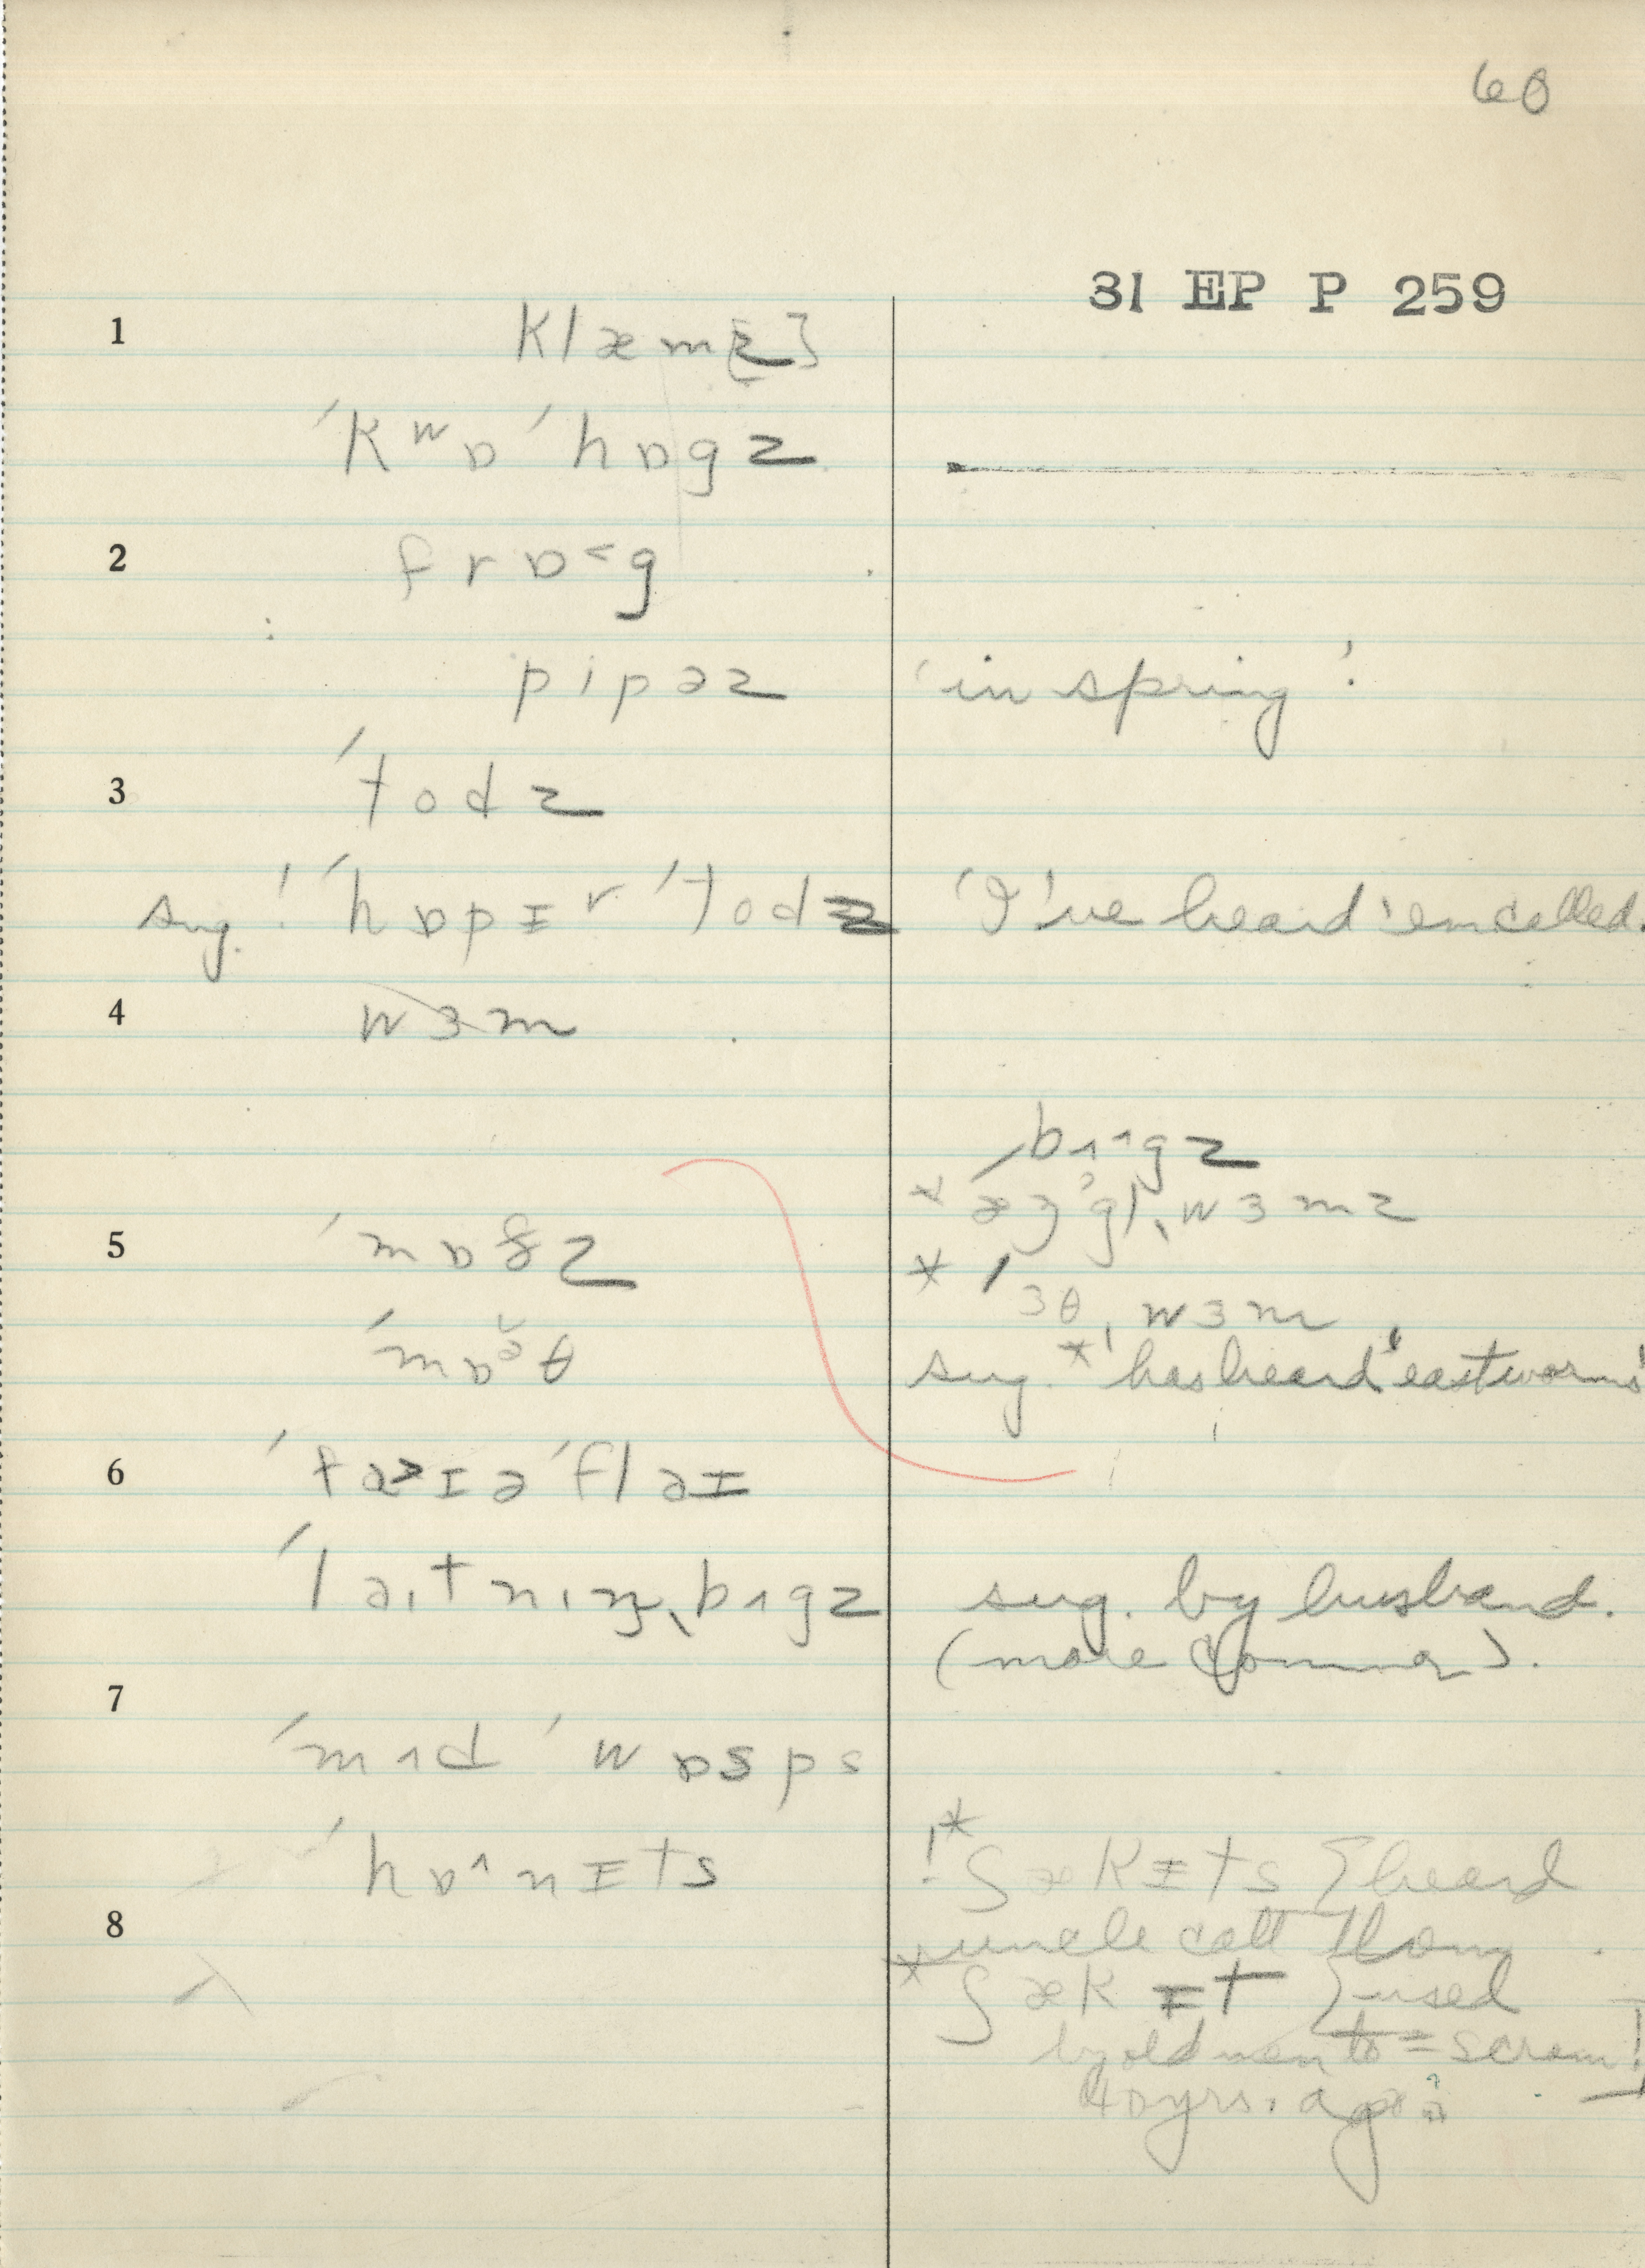 60
31 EP P 259
1 klæm[z]
ˈkʷɒ ˈhɒgz
2 frɒ˂g
pipəz 'in spring'.
3 ˈtodz
sug. ! ˈhɒpɪʳ ˈtodz 'I've heard 'em called.
4 wɜm
ˈbʌ^gz
* æŋ'gl ˌwɜmz
5 ˈmɒθz
* ˈɜθ ˌwɜm
ˈmɒə̆θ
sug. * ' has heard 'eastworms'
6 ˈfa˃ɪə ˈflaɪ
ˈlaıtnıŋ ˌbʌgz sug. by husband.
(more common).
7
ˈmʌd ˈwɒsps
ˈhɒ^nɪts !* ʃækɪts } heard
8 uncle call them
* ʃækɪt } used
by old men to = scram!
40 yrs. ago